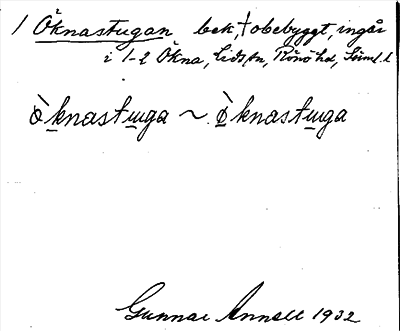 1 Öknastugan bek, † obebyggt, ingår
i 1-2 Ökna, Lids sn, Rönö hd, Söml. l
ò̀knastuga ~ ø̀knastuga
Gunnar Annell 1932